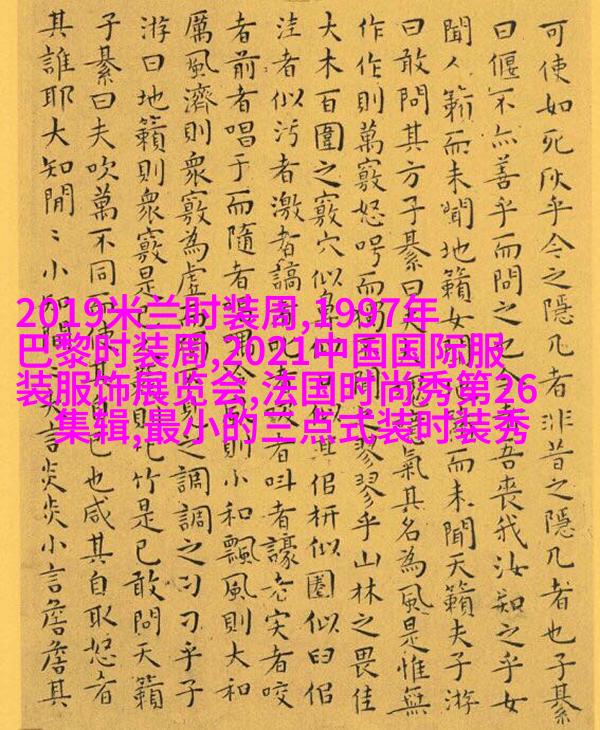 可使如死灰乎今之隱几者非昔之隱几者也子綦
曰偃不亦善乎而問之之今者吾喪我汝知之乎女
聞人籟而未聞地籟女聞地籟而未聞天籟夫子游
曰敢問其方子綦曰夫噫氣其名為風是惟無
作作則萬竅怒呺而獨不聞之翏翏乎山林之畏佳
大木百圍之竅穴似鼻似口似佀枅似圈似臼佀
洼者似污者激者謞者叱者吸者叫者譹者宎者咬
者前者唱于而隨者唱喁泠風則小和飄風則大和
厲風濟則衆竅為虛而獨不見之調調之刁刁乎子
游曰地籟則衆竅是已人籟則比竹是已敢問天籟
子綦曰夫吹萬不同而使其自己也咸其自取怒者
其誰耶大知閒〻小知閒〻大言炎炎小言詹詹其
2019米兰时装周,1997年
巴黎时装周,2021中国国际服
装服饰展览会,法国时尚秀第26
集辑,最小的三点式装时装秀